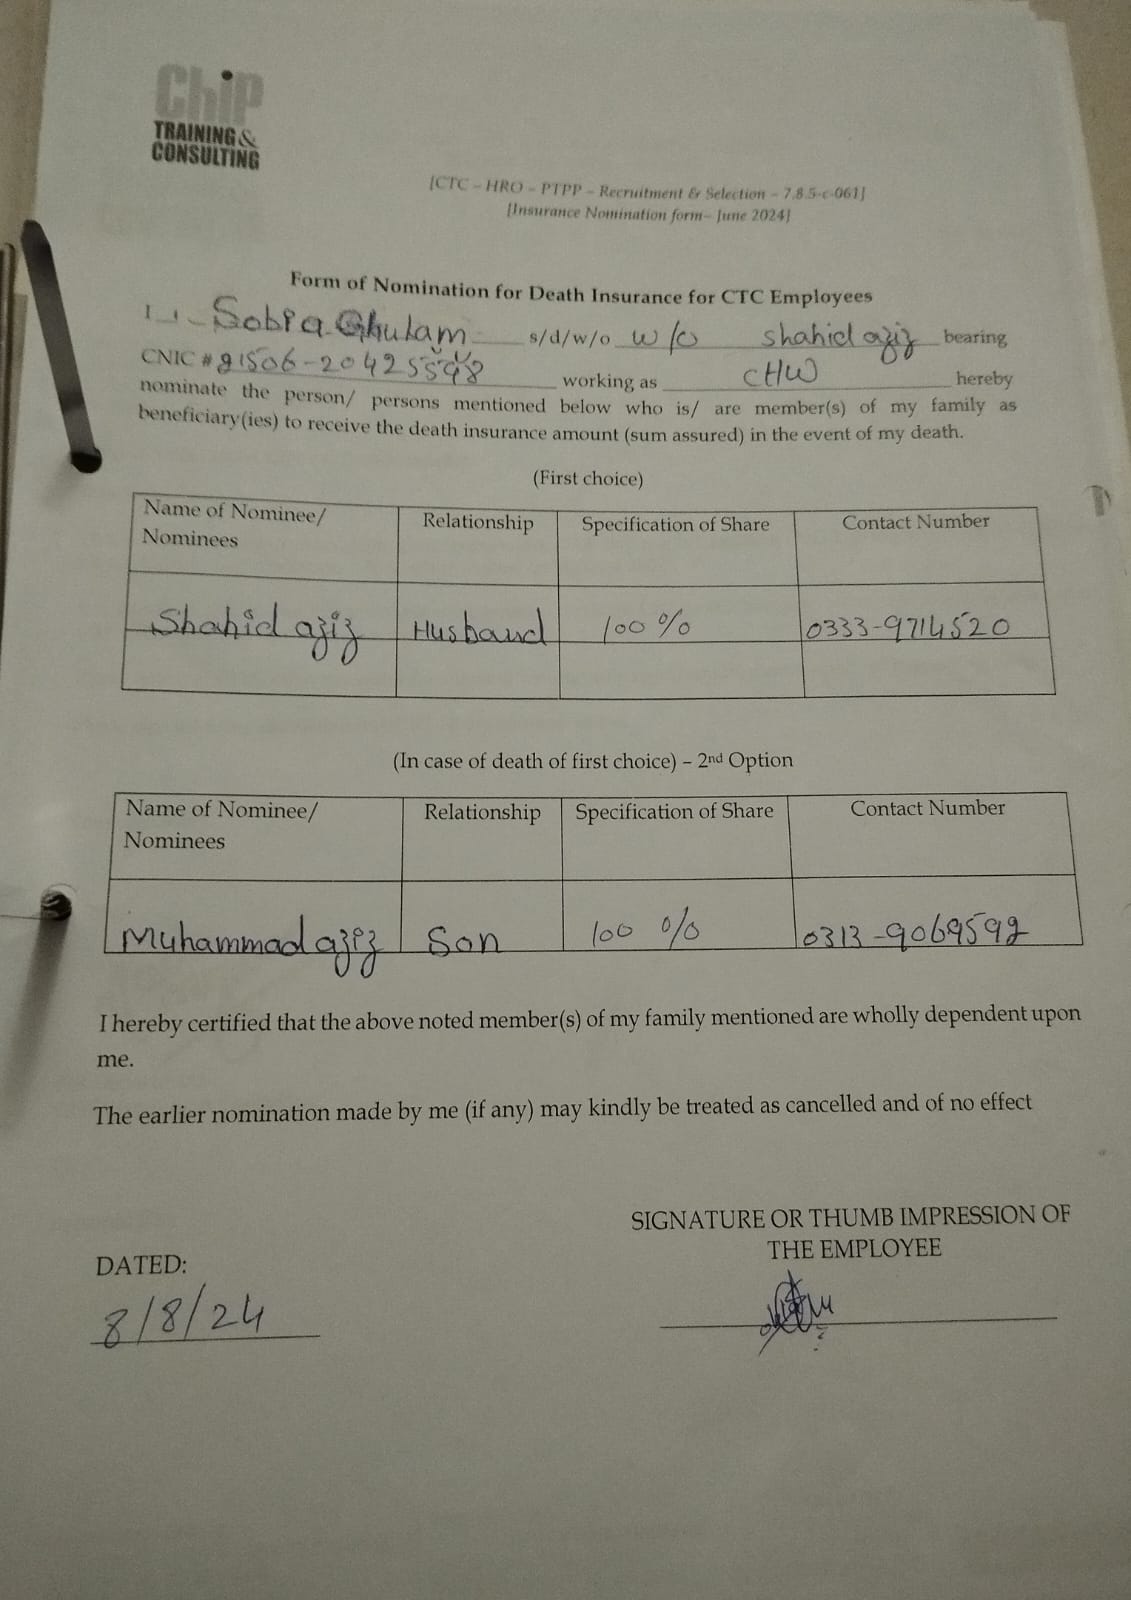 Chip
TRAINING &
CONSULTING
[CTC – HRO – PTPP – Recruitment & Selection – 7.8.5-c-061]
[Insurance Nomination form– June 2024]
Form of Nomination for Death Insurance for CTC Employees
I, Sobia Ghulam s/d/w/o w/o shahid aziz bearing
CNIC # 21506-20425598 working as CHW hereby
nominate the person/ persons mentioned below who is/ are member(s) of my family as
beneficiary(ies) to receive the death insurance amount (sum assured) in the event of my death.
(First choice)
Name of Nominee/ Relationship Specification of Share Contact Number
Nominees
Shahid aziz Husband 100 % 0333-9714520
(In case of death of first choice) – 2nd Option
Name of Nominee/ Relationship Specification of Share Contact Number
Nominees
Muhammad aziz Son 100 % 0313-9069592
I hereby certified that the above noted member(s) of my family mentioned are wholly dependent upon
me.
The earlier nomination made by me (if any) may kindly be treated as cancelled and of no effect
SIGNATURE OR THUMB IMPRESSION OF
THE EMPLOYEE
DATED:
8/8/24